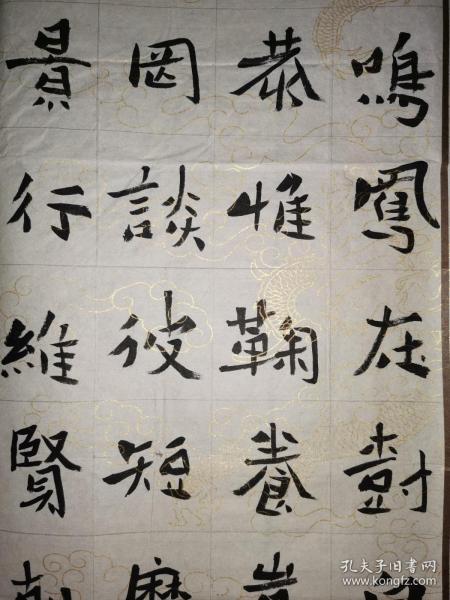 鳴鳳在樹
恭惟鞠養
罔談彼短
景行維賢
孔夫子旧书网
www.kongfz.com